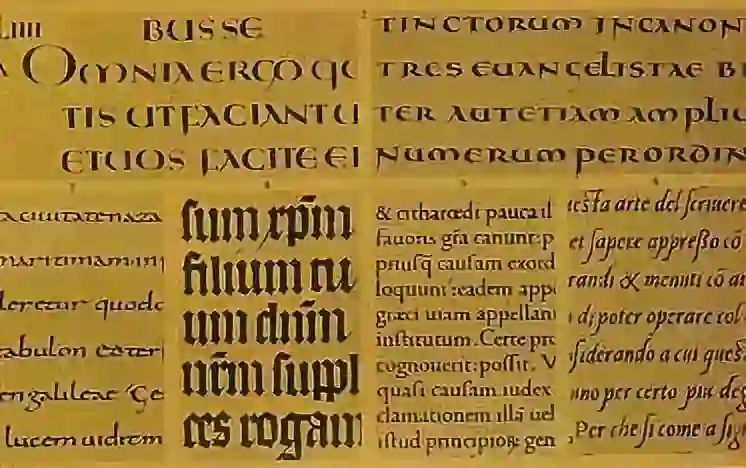 BUSSE
OMNIA ERGO QU
TIS UT FACIANT U
ET UOS FACITE EI
2
TINCTORUM IN CANON
TRES EUANGELISTAE BI
TER AUT ETIAM AMPLIU
NUMERUM PER ORDIN
3
a ciuitate naza
maritimam in
leretur quod
galileae Ge
lucem
4
sum xp̄m
filium tu
um dn̄m
nr̄m suppl
ces rogam
5
& citharœdi pauca il
fauoris gr̃a canunt: p
priusq̃ causam exord
loquunt᷑: eadem app
græci uiam appellant
institutum. Certe pro
cognouerit: possit. V
quasi causam iudex
clamationem illã uel
istud principioꝝ gen
6
uesta arte del scriuere
et sapere appresso cõ
randi & menuti cõ al
di poter operare tal
siderando a cui quest
uno per certo piu deg
Per che si come a sig